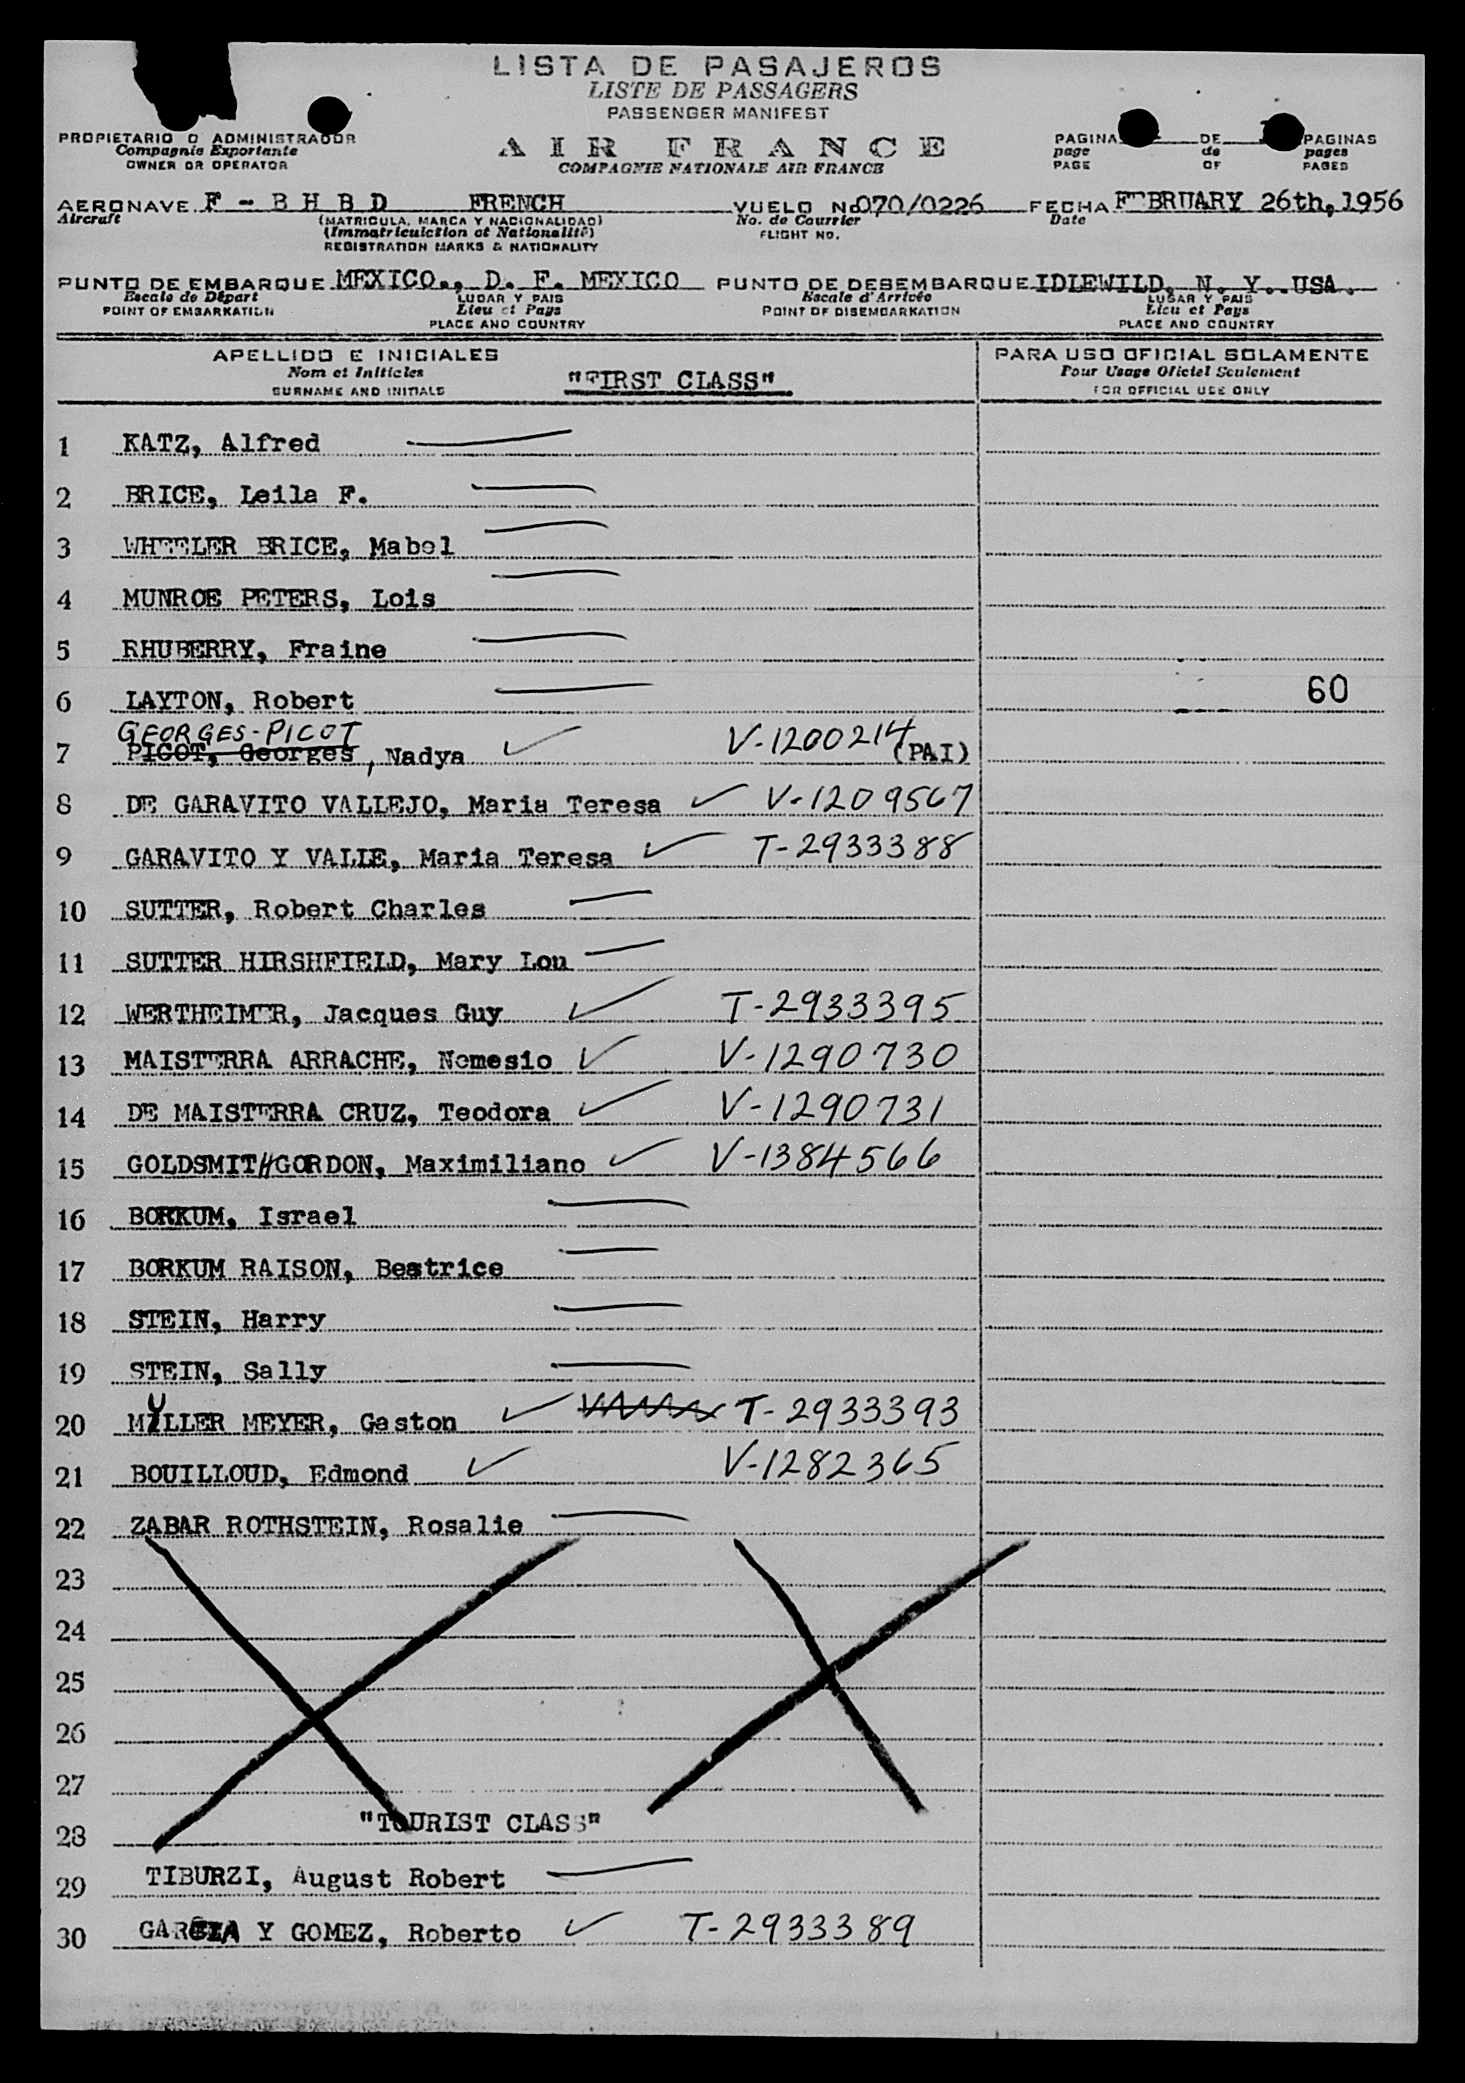 LISTA DE PASAJEROS
LISTE DE PASSAGERS
PASSENGER MANIFEST
PROPIETARIO O ADMINISTRADOR
Compagnie Exportante
OWNER OR OPERATOR
AIR FRANCE
COMPAGNIE NATIONALE AIR FRANCE
PAGINA DE PAGINAS
page de pages
PAGE OF PAGES
AERONAVE F - B H B D FRENCH VUELO No 070/0226 FECHA FEBRUARY 26th, 1956
Aircraft (MATRICULA, MARCA Y NACIONALIDAD) No. de Courrier Date
(Immatriculction et Nationalité) FLIGHT NO.
REGISTRATION MARKS & NATIONALITY
PUNTO DE EMBARQUE MEXICO., D. F. MEXICO PUNTO DE DESEMBARQUE IDLEWILD, N. Y. USA.
Escale de Départ LUGAR Y PAIS Escale d'Arrivée LUGAR Y PAIS
POINT OF EMBARKATION Lieu et Pays POINT OF DISEMBARKATION Lieu et Pays
PLACE AND COUNTRY PLACE AND COUNTRY
APELLIDO E INICIALES PARA USO OFICIAL SOLAMENTE
Nom et Initicles "FIRST CLASS" Pour Usage Oficiel Seulement
SURNAME AND INITIALS FOR OFFICIAL USE ONLY
1 KATZ, Alfred
2 BRICE, Leila F.
3 WHEELER BRICE, Mabel
4 MUNROE PETERS, Lois
5 RHUBERRY, Fraine
6 LAYTON, Robert 60
GEORGES-PICOT
7 PICOT, Georges, Nadya V-1200214 (PAI)
8 DE GARAVITO VALLEJO, Maria Teresa V-1209567
9 GARAVITO Y VALLE, Maria Teresa T-2933388
10 SUTTER, Robert Charles
11 SUTTER HIRSHFIELD, Mary Lou
12 WERTHEIMER, Jacques Guy T-2933395
13 MAISTERRA ARRACHE, Nemesio V-1290730
14 DE MAISTERRA CRUZ, Teodora V-1290731
15 GOLDSMITH GORDON, Maximiliano V-1384566
16 BORKUM, Israel
17 BORKUM RAISON, Beatrice
18 STEIN, Harry
19 STEIN, Sally
20 MULLER MEYER, Gaston T-2933393
21 BOUILLOUD, Edmond V-1282365
22 ZABAR ROTHSTEIN, Rosalie
23
24
25
26
27
"TOURIST CLASS"
28
29 TIBURZI, August Robert
30 GARCIA Y GOMEZ, Roberto T-2933389